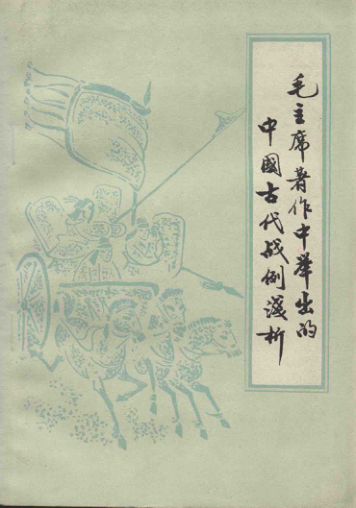 毛主席著作中举出的
中國古代战例淺析